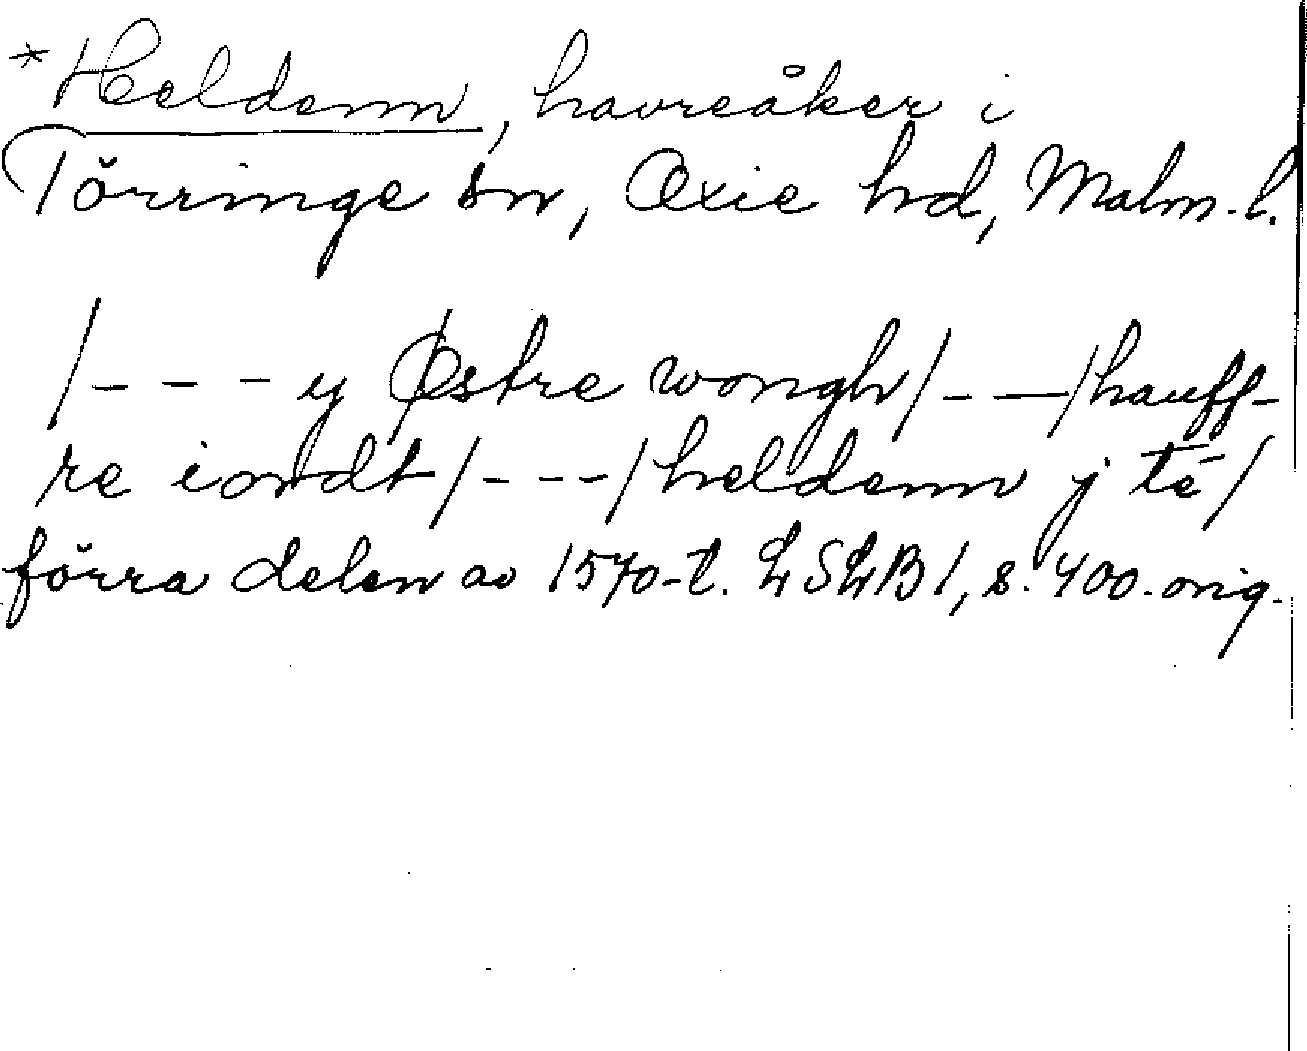 *Heldenn, havreåker i
Törringe sn, Oxie hd, Malm. l.
/- - - y Østre wongh/- —/hauff-
re iordt/- - -/heldenn j té/
förra delen av 1570-t. LSLB 1, s. 400. orig.